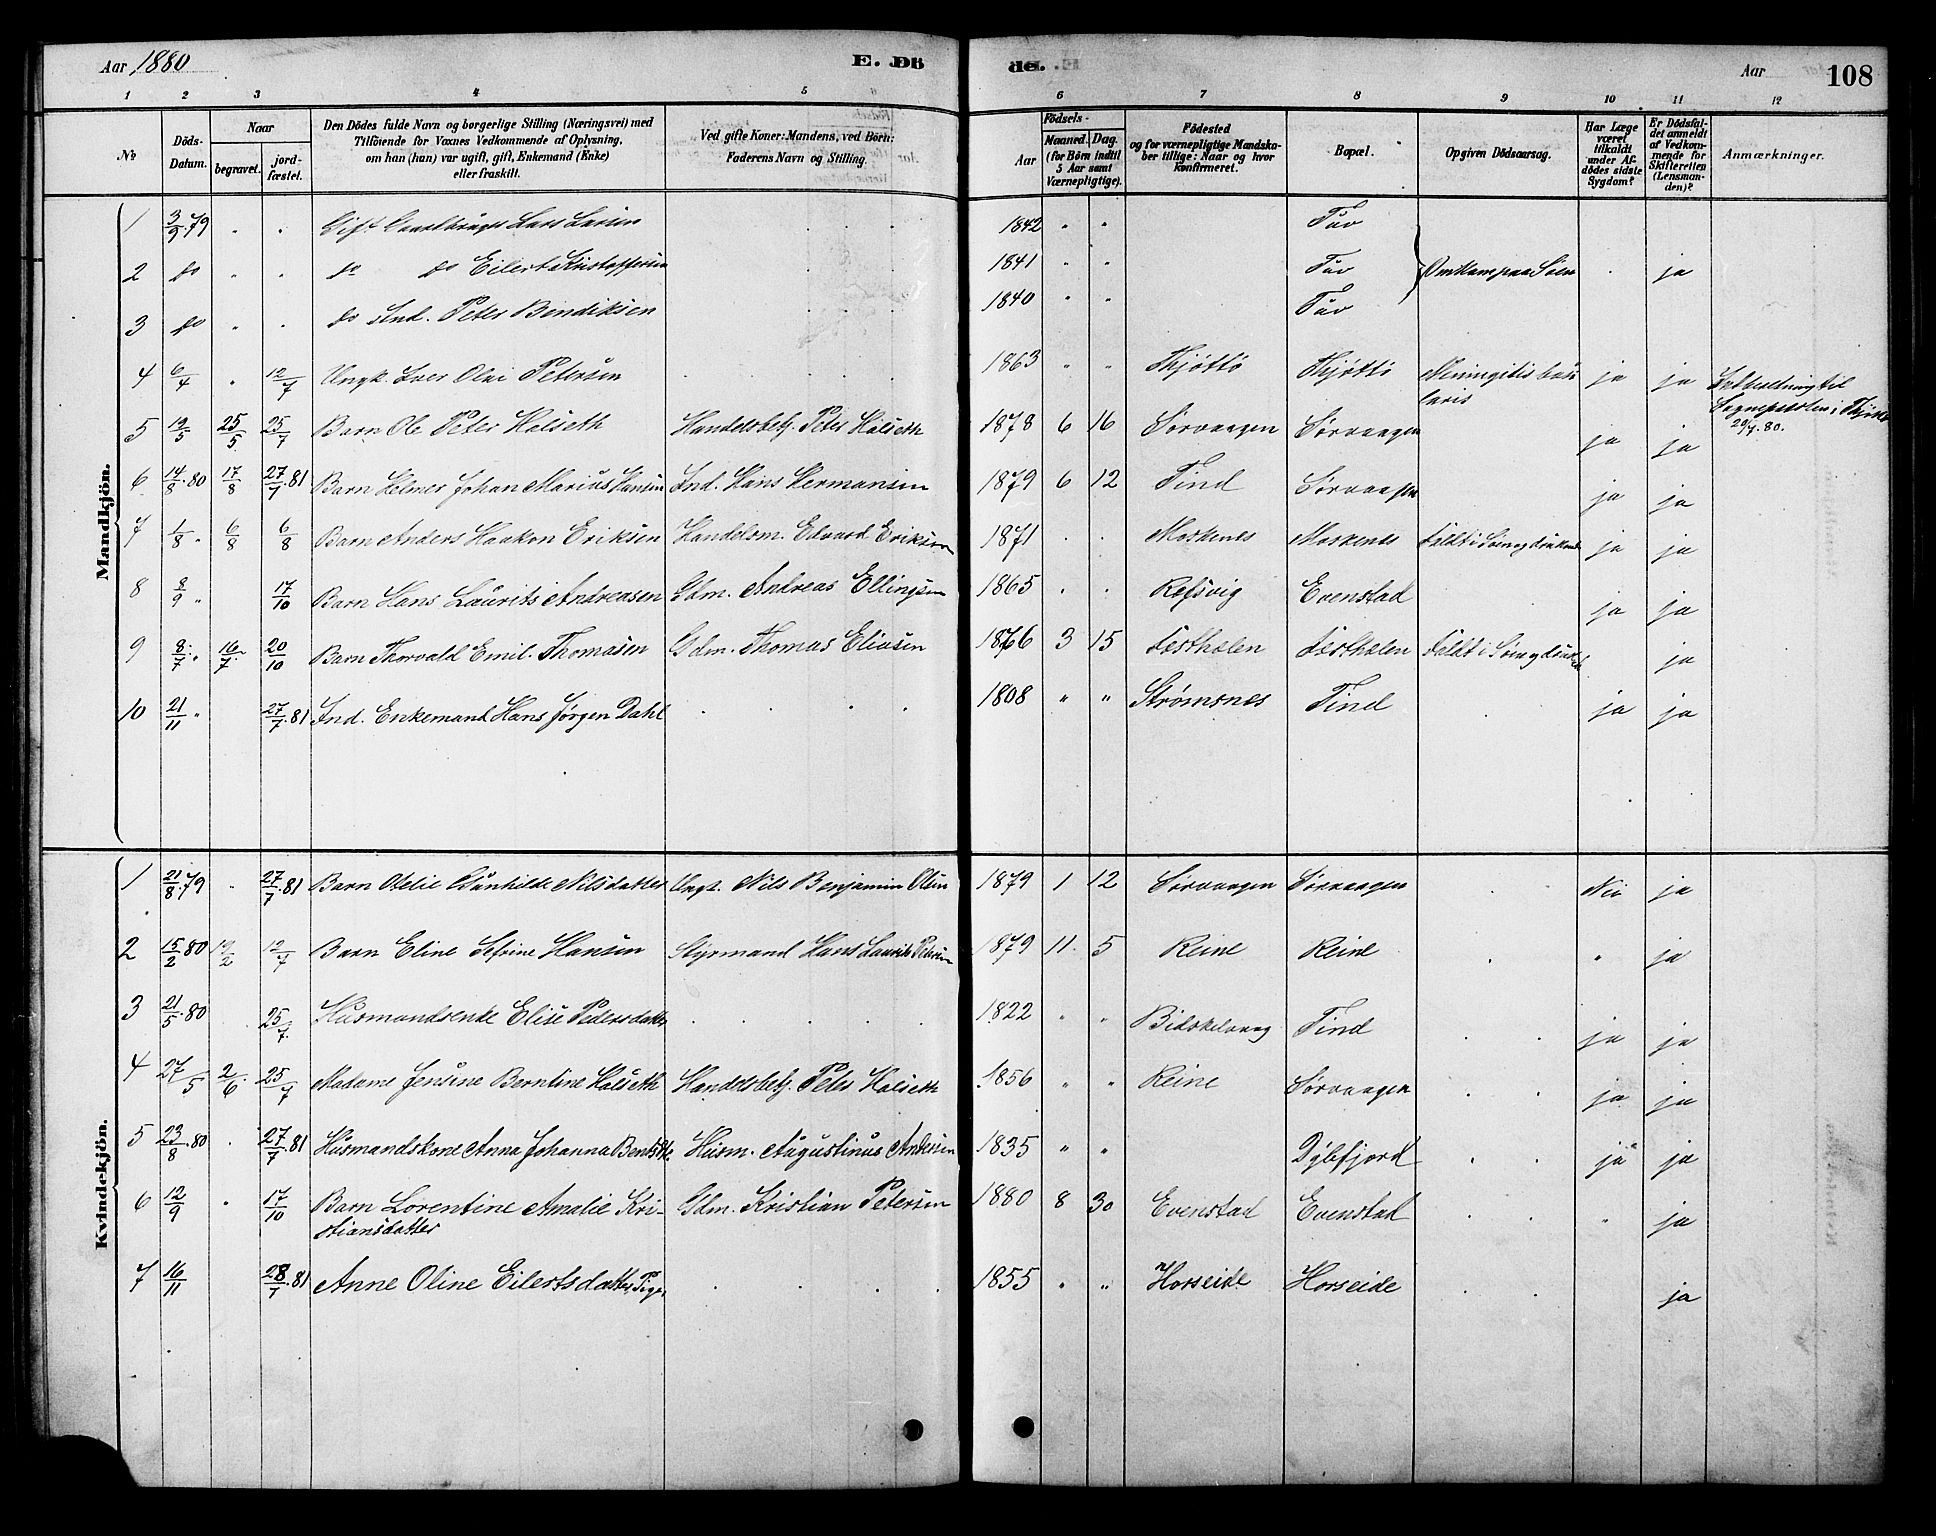 Aar 1880 E. Dö
de. Aar 108
1 2 3 4 5
6 7 8 9 10 11 12
No
Döds-Datum.
Naar
begravet.
jord-fæstet.
Den Dödes fulde Navn og borgerlige Stilling (Næringsvei) med
Tilföiende for Voxnes Vedkommende af Oplysning,
om han (hun) var ugift, gift, Enkemand (Enke)
eller fraskilt.
Ved gifte Koner: Mandens, ved Børn:
Faderens Navn og Stilling.
Födsels-
Aar
Maaned. Dag.
(for Börn indtil
5 Aar samt
Værnepligtige).
Födested
og for værnepligtige Mandska-
ber tillige: Naar og hvor
konfirmeret.
Bopæl.
Opgiven Dödsaarsag.
Har Læge
været
tilkaldt
under Af-
dödes sidste
Sygdom?
Er Dödsfal-
det anmeldt
af Vedkom-
mende for
Skifteretten
(Lensman-
den)?
Anmærkninger.
Mandkjön.
1 3/9.79 " " Gift Lars Larsen 1842 " " Tuv
2 do " " do do Eilert Kristoffersen 1841 " " Tuv Omkom paa Søen ja
3 do " " do Ind. Peter Bendiksen 1840 " " Tuv
4 6/4 " 12/7 Ungk. Iver Olai Petersen 1863 " " Thjøttø Thjøttø Meningitis basi-
laris ja ja Indberetning til
Sognepresten i Thjøttø
29/7.80.
5 19/5 25/5 25/7 Barn Ole Peter Halseth Handelsbetj. Peter Halseth 1878 6 16 Sørvaagen Sørvaagen ja ja
6 14/8.80 17/8 27/7.81 Barn Helmer Johan Marius Hansen Ind. Hans Hermansen 1879 6 12 Tind Sørvaagen ja ja
7 1/8 " 6/8 6/8 Barn Anders Haakon Eriksen Handelsm. Edvard Eriksen 1871 Moskenes Moskenes Faldt i Søen og druknede ja ja
8 8/9 " 17/10 Barn Hans Laurits Andreasen Gdm. Andreas Ellingsen 1865 Refsvig Evenstad ja ja
9 8/7 " 16/7 20/10 Barn Thorvald Emil Thomasen Gdm. Thomas Eliasen 1876 3 15 Festhælen Festhælen Faldt i Søen og ja
10 21/11 " 27/7.81 Ind. Enkemand Hans Jørgen Dahl 1808 " " Strømsnes Tind ja ja
Kvindekjön.
1 21/8.79 " 27/7.81 Barn Otelie Gunhilde Nilsdatter Ungk. Nils Benjamin Olsen 1879 1 12 Sørvaagen Sørvaagen Nei ja
2 15/2.80 19/2 12/7 Barn Eline Sefrine Hansen Styrmand Hans Laurits Petersen 1879 11 5 Reine Reine " ja
3 21/5.80 25/7 Husmandsenke Elise Pedersdatter 1822 " " Tind ja ja
4 27/5 2/6 25/7 Madame Jensine Berntine Halseth Handelsbetj. Peter Halseth 1856 " " Reine Sørvaagen ja ja
5 23/8.80 27/7.81 Husmandskone Anna Johanna Husm. Augustinus Andersen 1835 " " Dybfjord ja ja
6 12/9 " 17/10 Barn Lorentine Amalie Kri-
stiansdatter Gdm. Kristian Petersen 1880 8 30 Evenstad Evenstad " ja
7 16/11 28/7.81 Anne Oline Eilertsdatter, Pige, 1855 " " Horseide Horseide ja